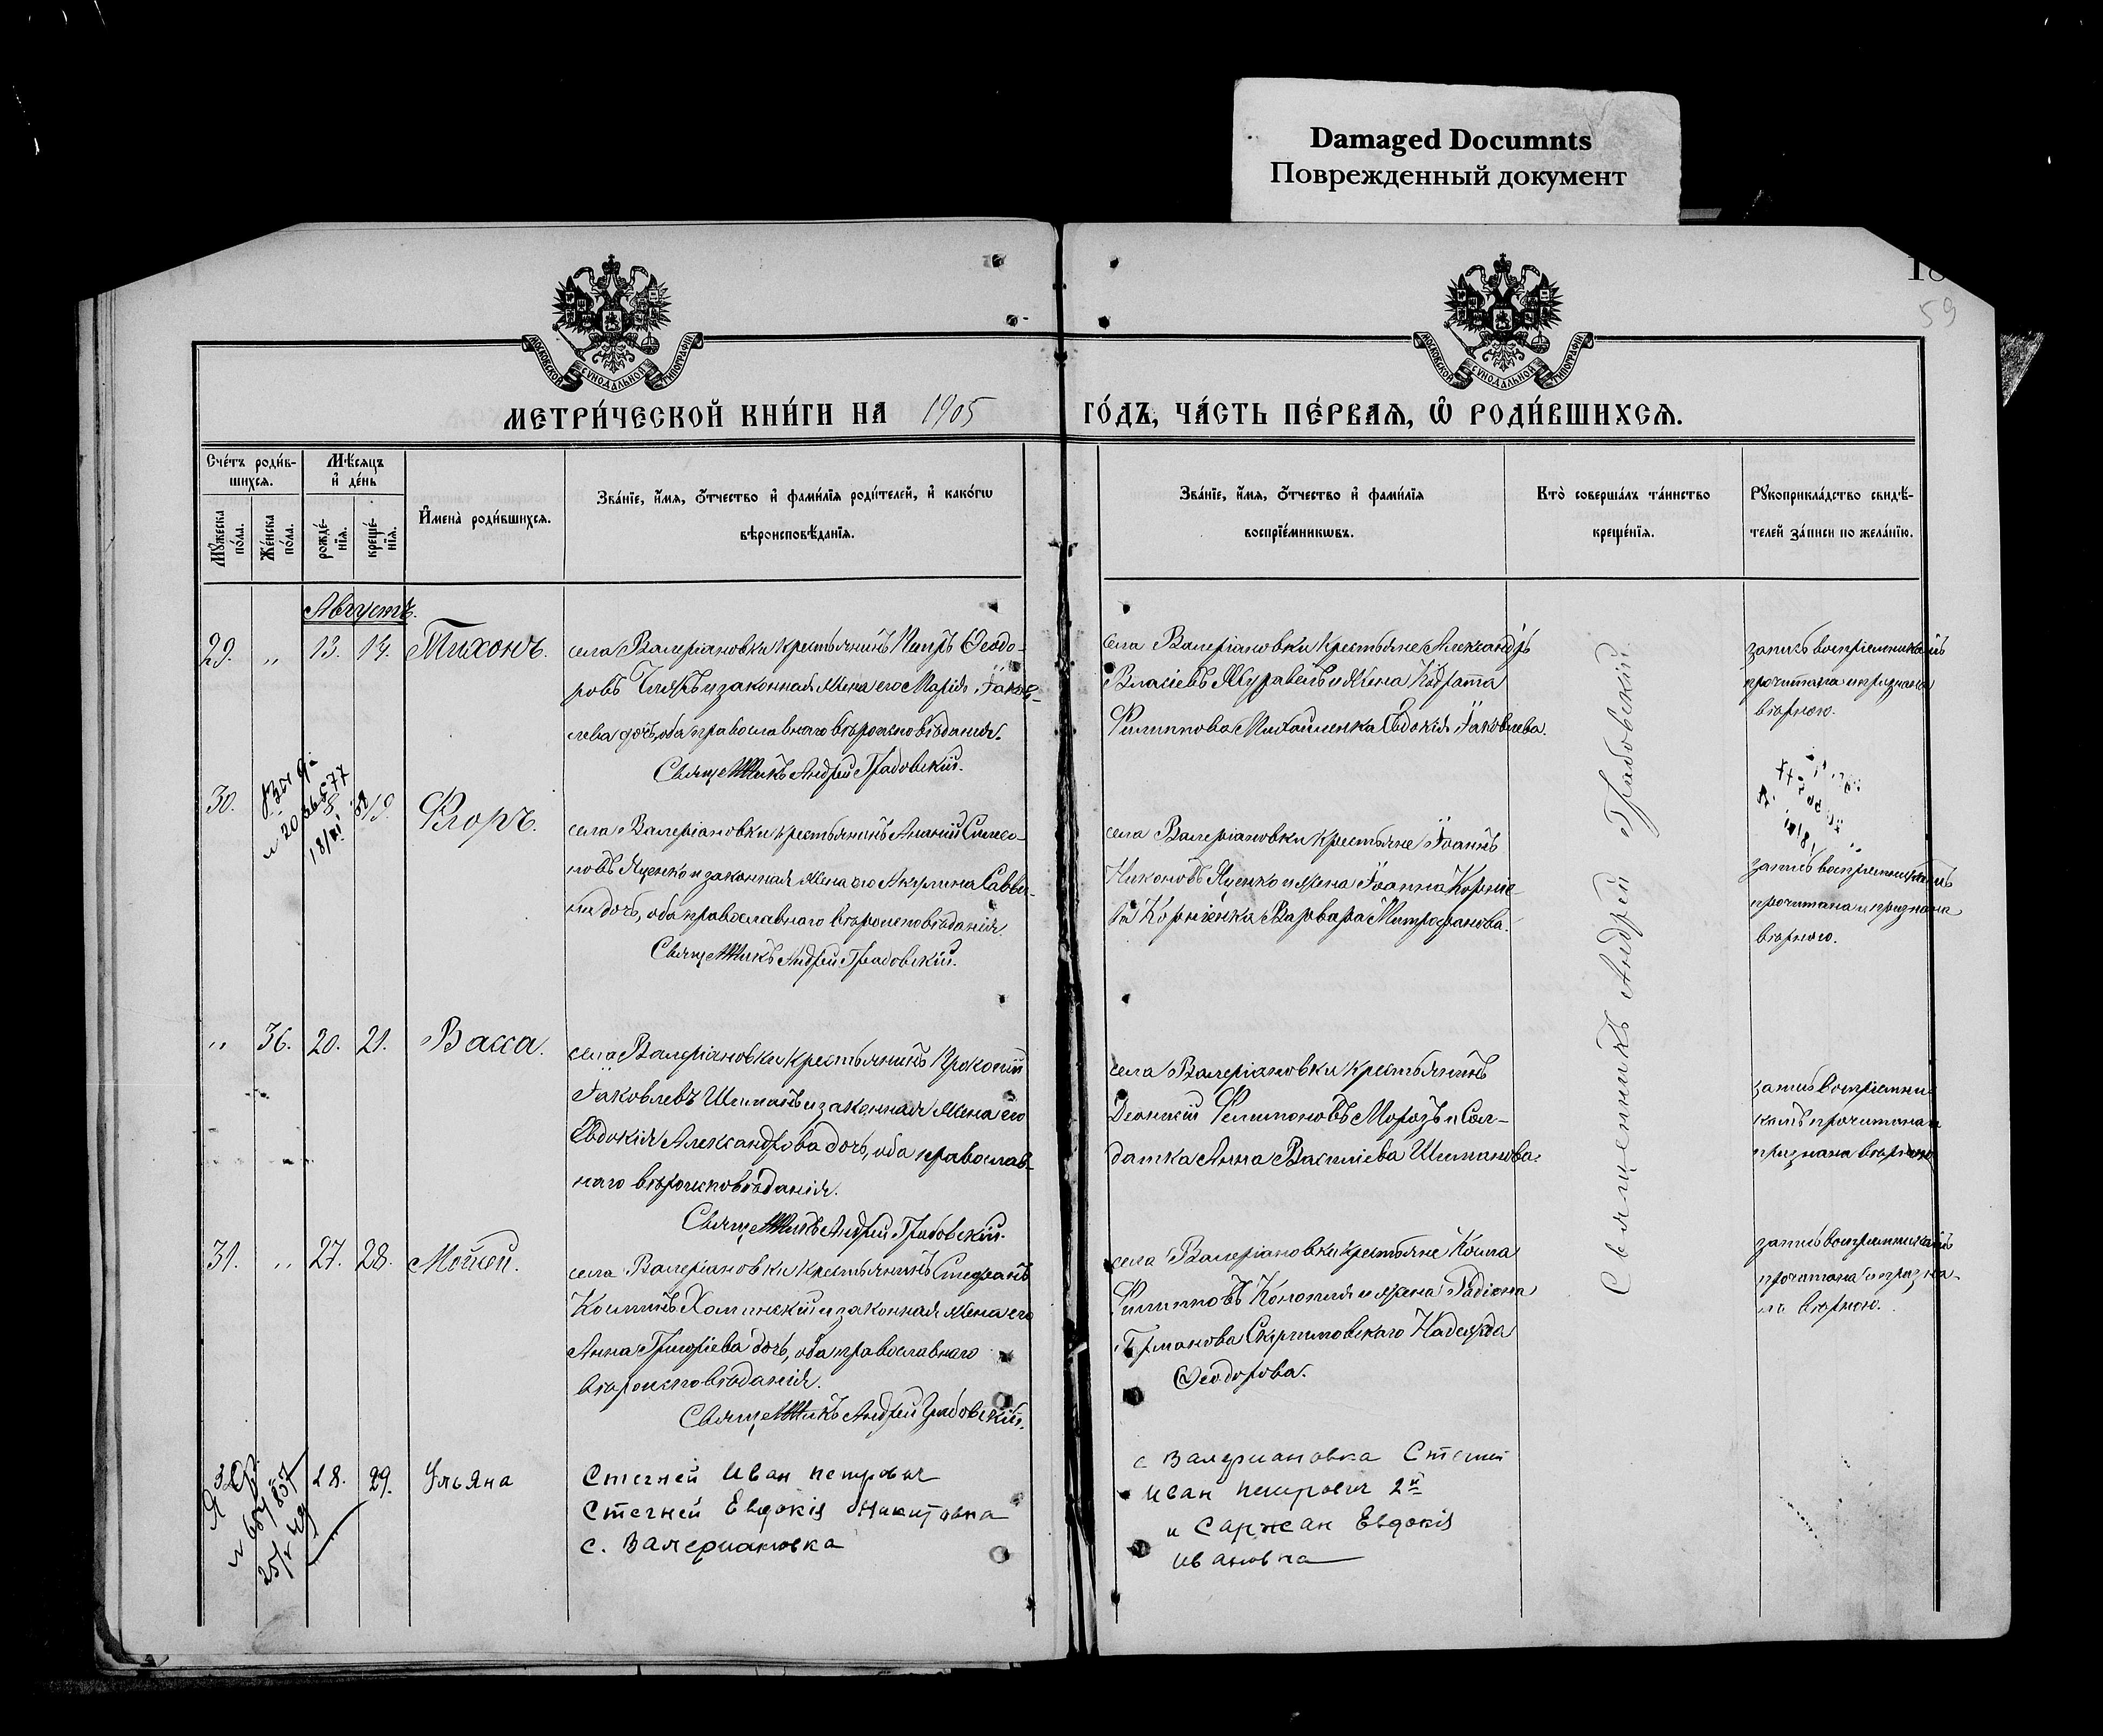 Damaged Documnts
Поврежденный документ
59
МОСКОВСКОЙ СѴНОДАЛЬНОЙ ТИПОГРАФІИ
МОСКОВСКОЙ СѴНОДАЛЬНОЙ ТИПОГРАФІИ
МЕТРИ́ЧЕСКОЙ КНИ́ГИ НА 1905 ГО́ДЪ, ЧА́СТЬ ПЕ́РВАѦ, Ѽ РОДИ́ВШИХСѦ.
Сче́тъ роди́в-
шихсѧ.
Мꙋ́жеска по́ла.
Же́нска по́ла.
Мѣ́сѧцъ
и҆ де́нь
рожде́-
нїѧ.
креще́-
нїѧ.
И҆мена̀ роди́вшихсѧ.
Зва́нїе, и҆́мѧ, ѻ҆́тчество и҆ фами́лїѧ роди́телей, и҆ како́гѡ
вѣроисповѣ́данїѧ.
Зва́нїе, и҆́мѧ, ѻ҆́тчество и҆ фами́лїѧ
воспрїе́мникѡвъ.
Кто̀ соверша́лъ та́инство
креще́нїѧ.
Рꙋкоприкла́дство свидѣ́-
телей за́писи по жела́нїю.
Августъ.
29. " 13. 14. Тихонъ.
села Валеріановки крестьянинъ Петръ Ѳеодо-
ровъ и законная жена его Марія Іаков-
лева дочь, оба православнаго вѣроисповѣданія.
Священникъ Андрей Грабовскій.
села Валеріановки крестьяне Александръ
Власіевъ Журавель и жена Кодрата
Филиппова Михайленка Евдокія Іаковлева.
запись воспріемникамъ
прочитана и признана
вѣрною.
30. 18 19. Флоръ.
села Валеріановки крестьянинъ Ананій Симео-
новъ Яценко и законная жена его Акулина Савви-
на дочь, оба православнаго вѣроисповѣданія.
Священникъ Андрей Грабовскій.
села Валеріановки крестьяне Іоаннъ
Никоновъ Яценко и жена Іоанна Корніе-
ва Корніенка Варвара Митрофанова.
запись воспріемникамъ
прочитана и признана
вѣрною.
" 36. 20. 21. Васса.
села Валеріановки крестьянинъ Прокопій
Іаковлевъ Шиманъ и законная жена его
Евдокія Александрова дочь, оба православ-
наго вѣроисповѣданія.
Священникъ Андрей Грабовскій.
села Валеріановки крестьянинъ
Діонисій Филимоновъ Морозъ и Сол-
датка Анна Василіева Шиманова.
запись воспріемни-
камъ прочитана и
признана вѣрною
31. " 27. 28. Моисей.
села Валеріановки крестьянинъ Стефанъ
Косминъ Хоминскій и законная жена его
Анна Григоріева дочь, оба православнаго
вѣроисповѣданія.
Священникъ Андрей Грабовскій.
села Валеріановки крестьяне Косма
Филипповъ Конопля и жена Радіона
Германова Скуршовскаго Надежда
Ѳеодорова.
запись воспріемникамъ
прочитана и призна-
на вѣрною.
Священникъ Андрей Грабовскій.
28. 29. Ульяна
Стегней Иван петрович
Стегней Евдокія Никитовна
с. Валериановка
с Валериановка Стегней
Иван петрович 2й
и Саржан Евдокія
Ивановна